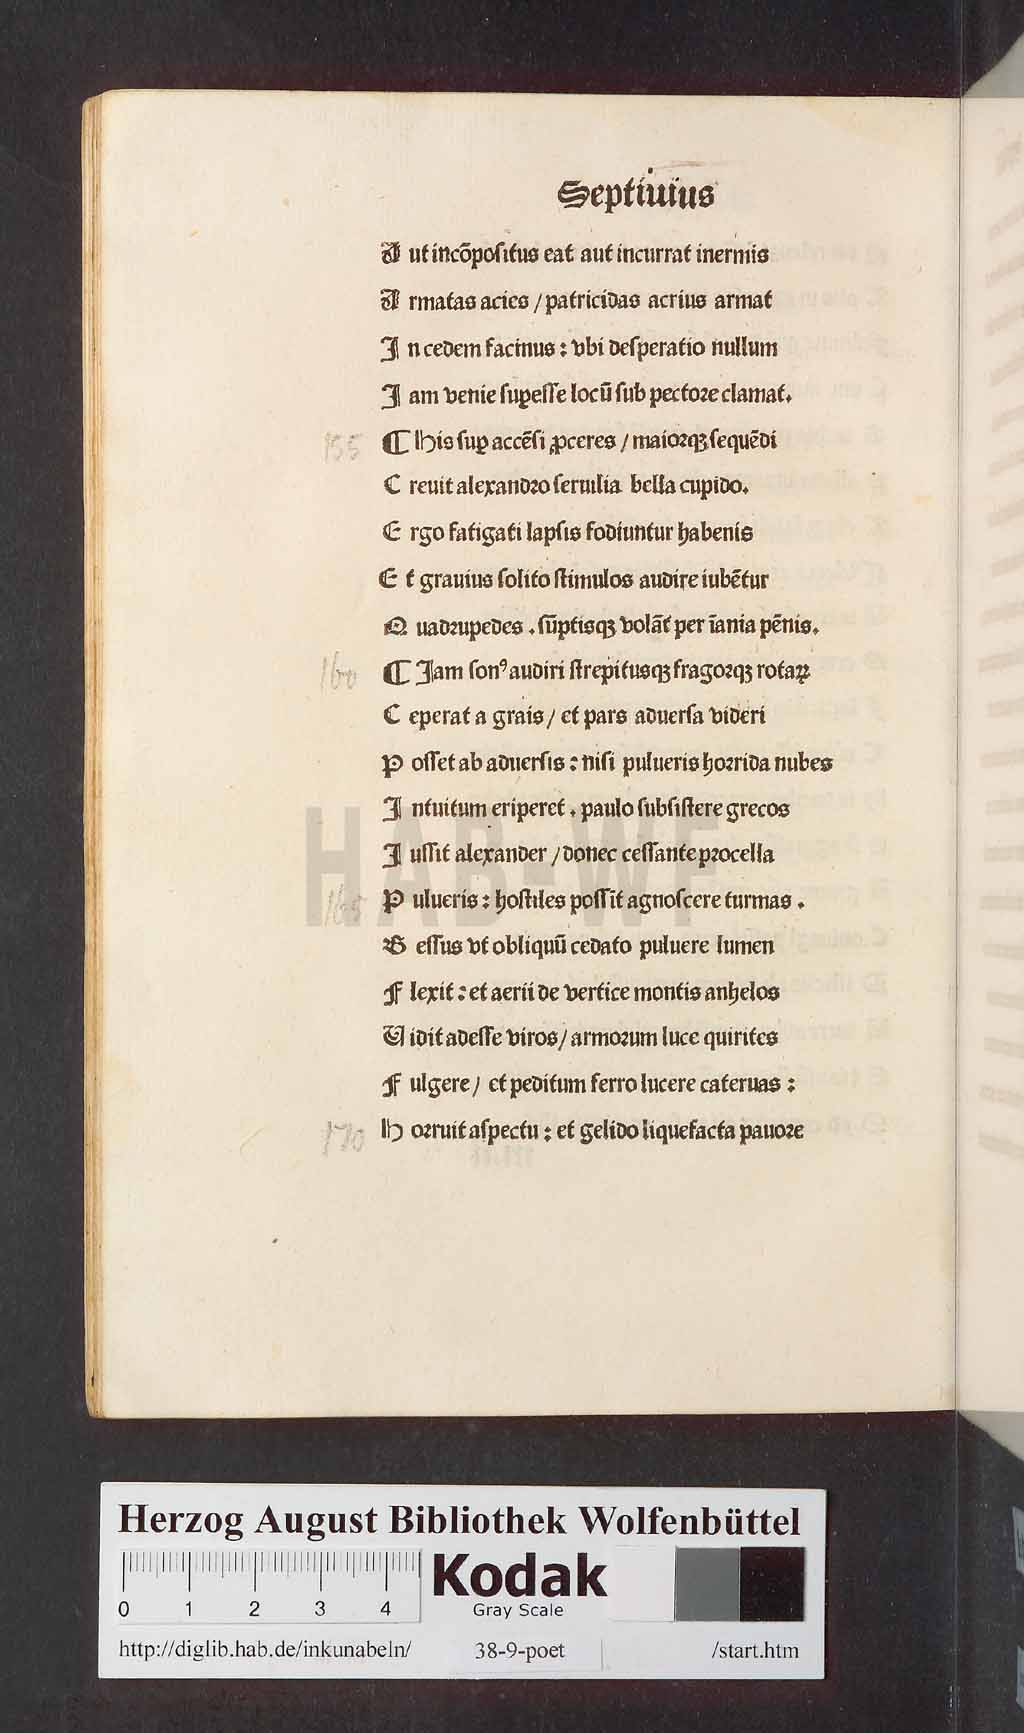 Septiuius
A ut incõpositus eat aut incurrat inermis
A rmatas acies / patricidas acrius armat
I n cedem facinus : vbi desperatio nullum
I am venie suꝑesse locũ sub pectore clamat.
155 ¶ His suꝑ accẽsi ꝓceres / maiorqꝫ sequẽdi
C reuit alexandro seruilia bella cupido.
E rgo fatigati lapsis fodiuntur habenis
E t grauius solito stimulos audire iubẽtur
Q uadrupedes . sũptisqꝫ volãt per ĩania pẽnis.
160 ¶ Iam sonꝰ audiri strepitusqꝫ fragorqꝫ rotaꝝ
C eperat a grais / et pars aduersa videri
P osset ab aduersis : nisi pulueris horrida nubes
I ntuitum eriperet . paulo subsistere grecos
I ussit alexander / donec cessante procella
165 P ulueris : hostiles possit agnoscere turmas .
B essus vt obliquũ cedato puluere lumen
F lexit : et aerii de vertice montis anhelos
V idit adesse viros / armorum luce quirites
F ulgere / et peditum ferro lucere cateruas :
170 H orruit aspectu : et gelido liquefacta pauore
HAB-WF
Herzog August Bibliothek Wolfenbüttel
0 1 2 3 4
Kodak
Gray Scale
http://diglib.hab.de/inkunabeln/ 38-9-poet /start.htm